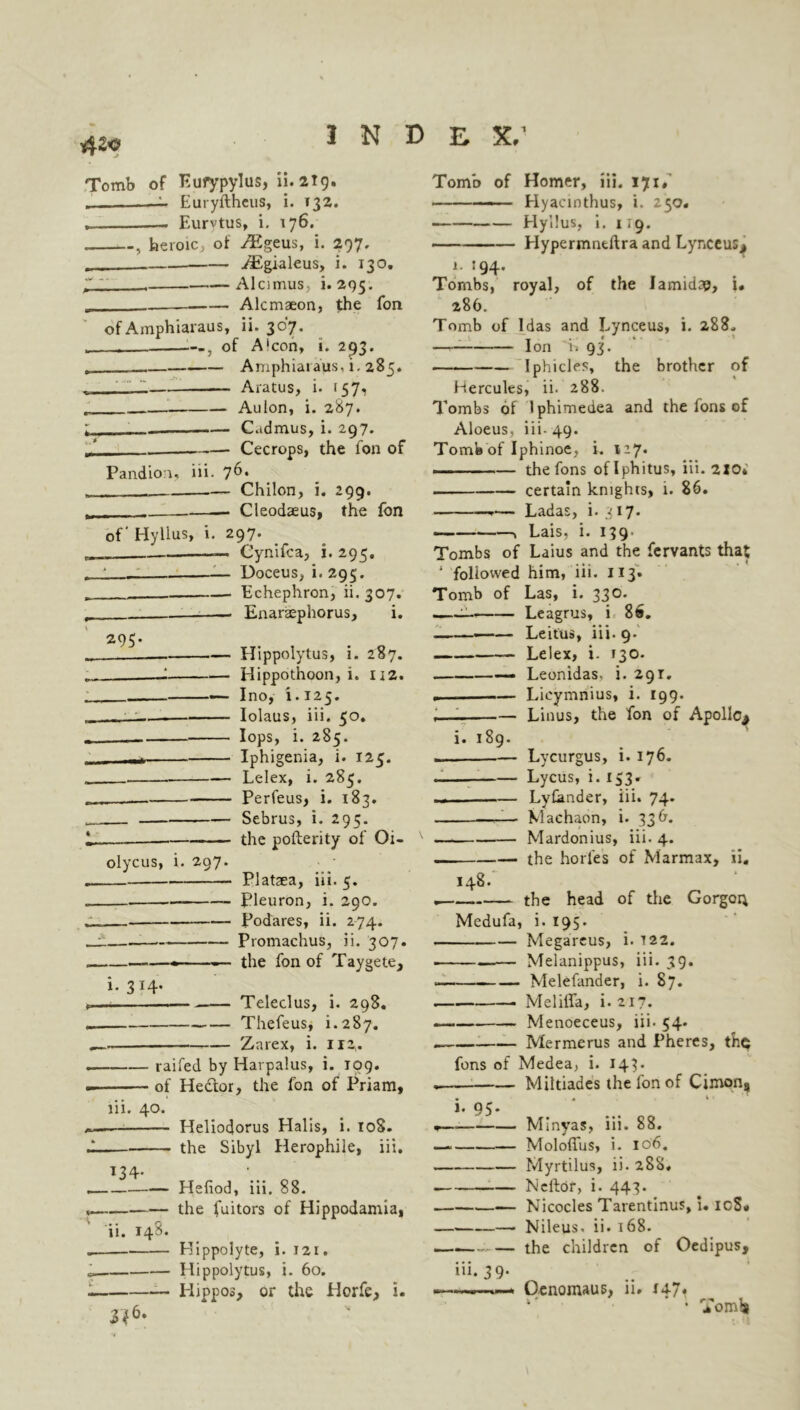 420
INDEX.
Tomb of Eurypylus, ii. 219.
——— Euryſtheus, i. 132.
——— Eurytus, i. 176.
———, heroic, of Ægeus, i. 297.
——— Ægialeus, i. 130.
——— Alcimus, i. 295.
——— Alcmæon, the ſon
of Amphiaraus, ii. 307.
———, of Alcon, i. 293.
——— Amphiaraus, i. 285.
——— Aratus, i. 157,
——— Aulon, i. 287.
——— Cadmus, i. 297.
——— Cecrops, the ſon of
Pandion, iii. 76.
——— Chilon, i. 299.
——— Cleodæus, the ſon
of Hyllus, i. 297.
——— Cyniſca, i. 295.
——— Doceus, i. 295.
——— Echephron, ii. 307.
——— Enaræphorus, i.
295.
——— Hippolytus, i. 287.
——— Hippothoon, i. 112.
——— Ino, i. 125.
——— Iolaus, iii. 50.
——— Iops, i. 285.
——— Iphigenia, i. 125.
——— Lelex, i. 285.
——— Perſeus, i. 183.
——— Sebrus, i. 295.
——— the poſterity of Oi-
olycus, i. 297.
——— Platæa, iii. 5.
——— Pleuron, i. 290.
——— Podares, ii. 274.
——— Promachus, ii. 307.
——— the ſon of Taygete,
i. 314.
——— Teleclus, i. 298.
——— Theſeus, i. 287.
——— Zarex, i. 112.
——— raiſed by Harpalus, i. 109.
——— of Hector, the ſon of Priam,
iii. 40.
——— Heliodorus Halis, i. 108.
——— the Sibyl Herophile, iii.
134.
——— Heſiod, iii. 88.
——— the ſuitors of Hippodamia,
ii. 148.
——— Hippolyte, i. 121.
——— Hippolytus, i. 60.
——— Hippos, or the Horſe, i.
316.
Tomb of Homer, iii. 171.
——— Hyacinthus, i. 250.
——— Hyllus, i. 119.
——— Hypermneſtra and Lynceus,
i. 194.
Tombs, royal, of the Iamidæ, i.
286.
Tomb of Idas and Lynceus, i. 288.
——— Ion i. 93.
——— Iphicles, the brother of
Hercules, ii. 288.
Tombs of Iphimedea and the ſons of
Aloeus, iii. 49.
Tomb of Iphinoe, i. 127.
——— the ſons of Iphitus, iii. 210.
——— certain knights, i. 86.
——— Ladas, i. 317.
——— Lais, i. 139.
Tombs of Laius and the ſervants that
followed him, iii. 113.
Tomb of Las, i. 330.
——— Leagrus, i 86.
——— Leitus, iii. 9.
——— Lelex, i. 130.
——— Leonidas, i. 291.
——— Licymnius, i. 199.
——— Linus, the ſon of Apollo,
i. 189.
——— Lycurgus, i. 176.
——— Lycus, i. 153.
——— Lyſander, iii. 74.
——— Machaon, i. 336.
——— Mardonius, iii. 4.
——— the horſes of Marmax, ii.
148.
——— the head of the Gorgon
Meduſa, i. 195.
——— Megareus, i. 122.
——— Melanippus, iii. 39.
——— Meleſander, i. 87.
——— Meliſſa, i. 217.
——— Menoeceus, iii. 54.
——— Mermerus and Pheres, the
ſons of Medea, i. 143.
——— Miltiades the ſon of Cimon,
i. 95.
——— Minyas, iii. 88.
——— Moloſſus, i. 106.
——— Myrtilus, ii. 288.
——— Neſtor, i. 443.
——— Nicocles Tarentinus, i. 108.
——— Nileus, ii. 168.
——— the children of Oedipus,
iii. 39.
——— Oenomaus, ii. 147.
Tomb